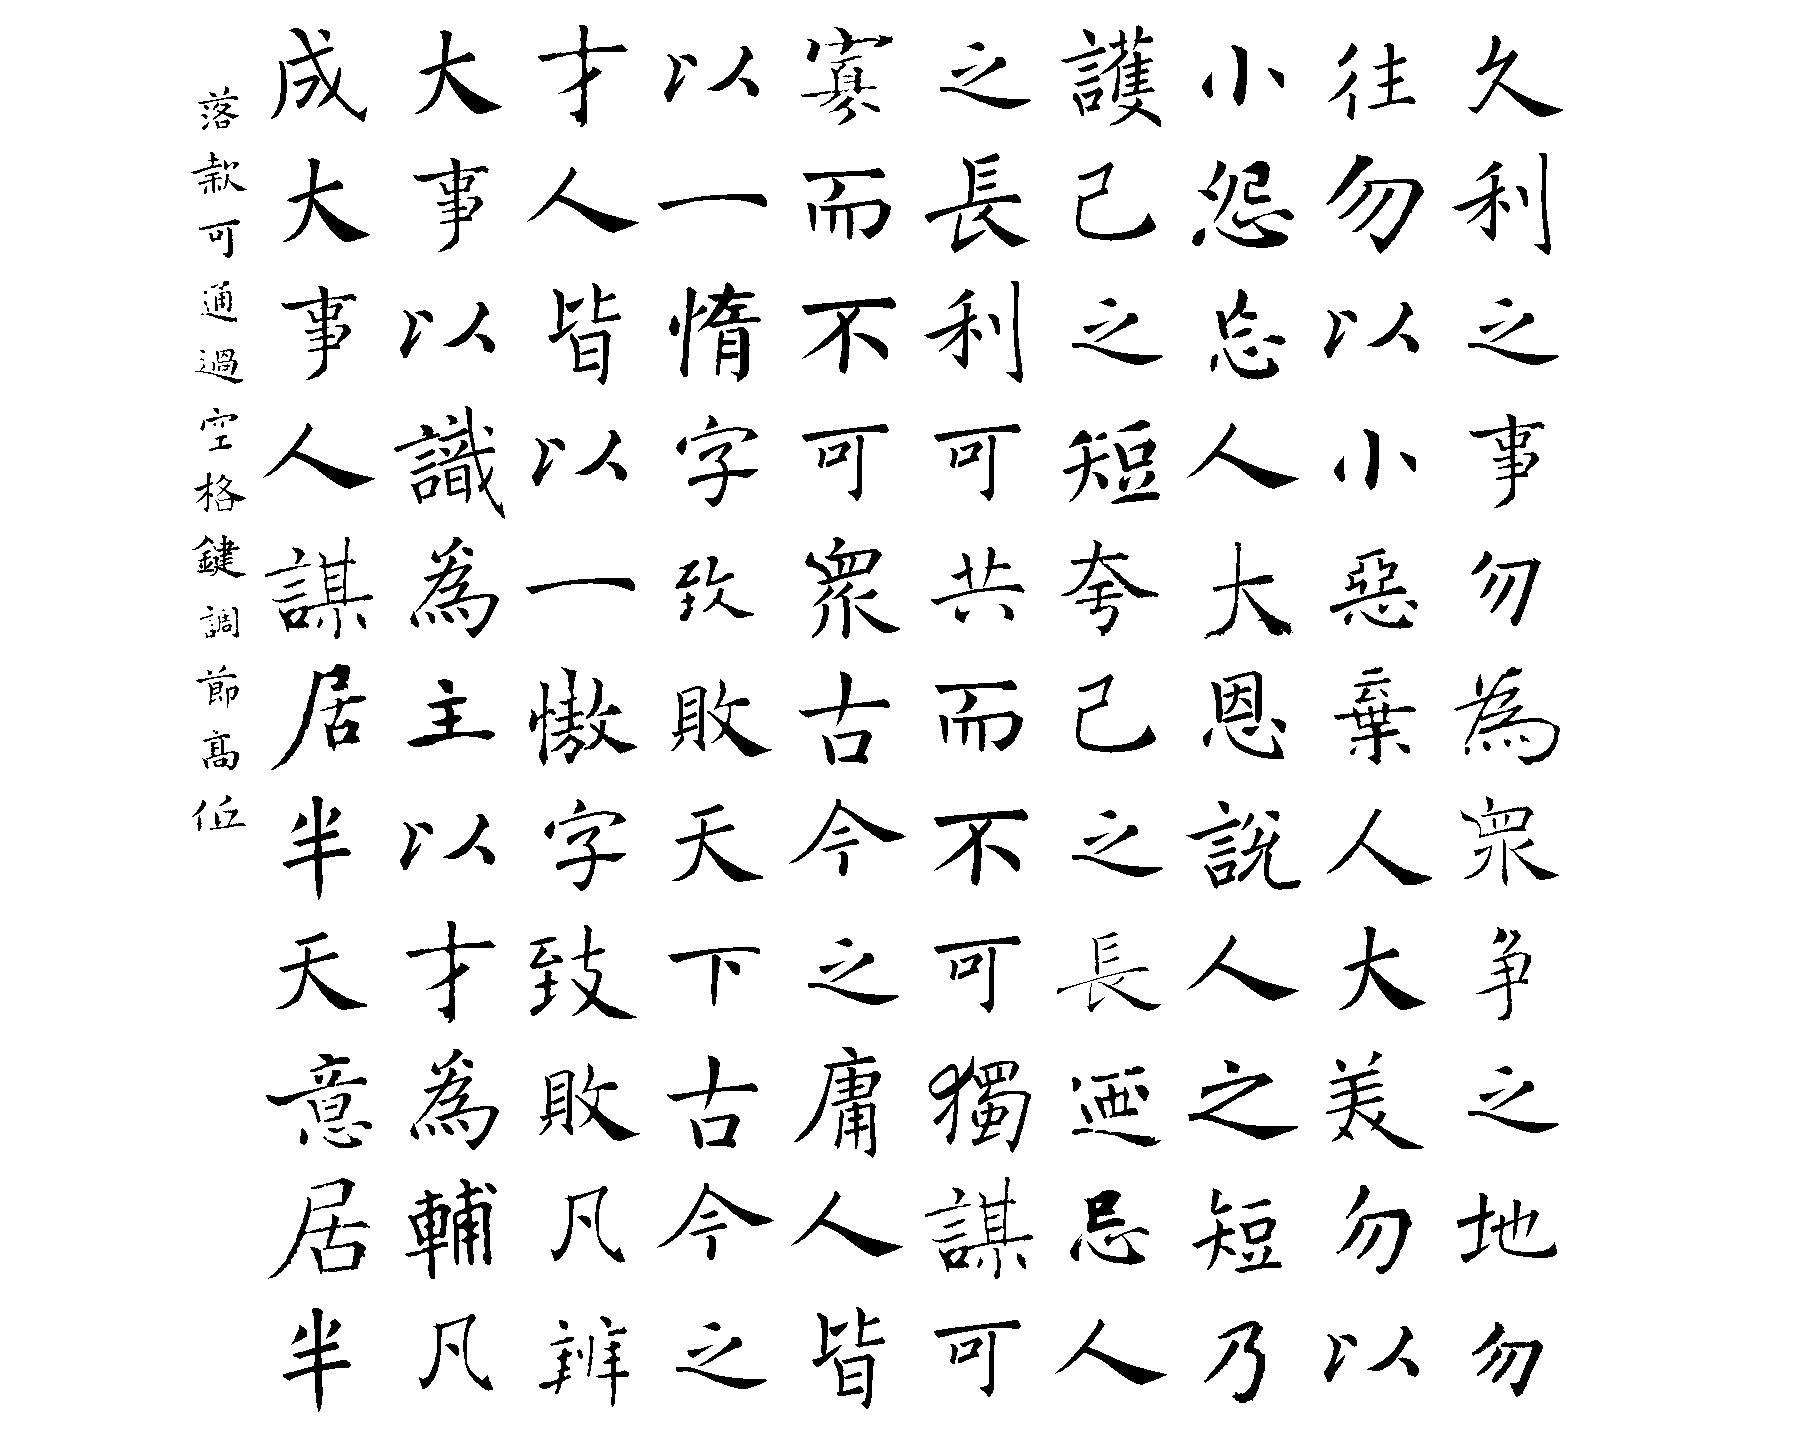 久利之事勿為眾爭之地勿
往勿以小惡棄人大美勿以
小怨忘人大恩說人之短乃
護己之短夸己之長迺忌人
之長利可共而不可獨謀可
寡而不可眾古今之庸人皆
以一惰字致敗天下古今之
才人皆以一慠字致敗凡辨
大事以識為主以才為輔凡
成大事人謀居半天意居半
落款可通過空格鍵調節高低